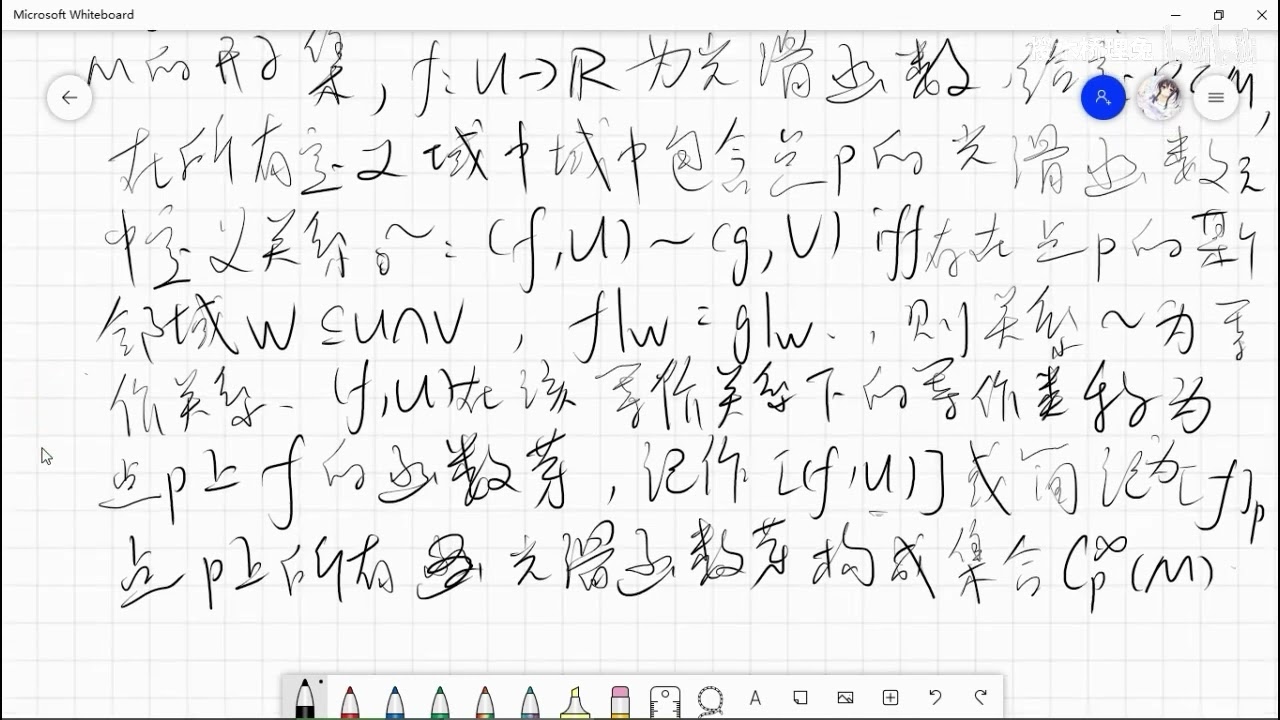 Microsoft Whiteboard
M的开子集, f: U→R 为光滑函数, 给定p∈M,
在所有定义域中域中包含点p的光滑函数元
中定义关系~: (f,U)~(g,V) iff 存在点p的某个
邻域W⊆U∩V, f|w=g|w., 则关系~为等
价关系. (f,U)在该等价关系下的等价类称为
点p上f的函数芽, 记作[(f,U)]或简记为[f]p
点p上所有光滑函数芽构成集合C∞p(M).